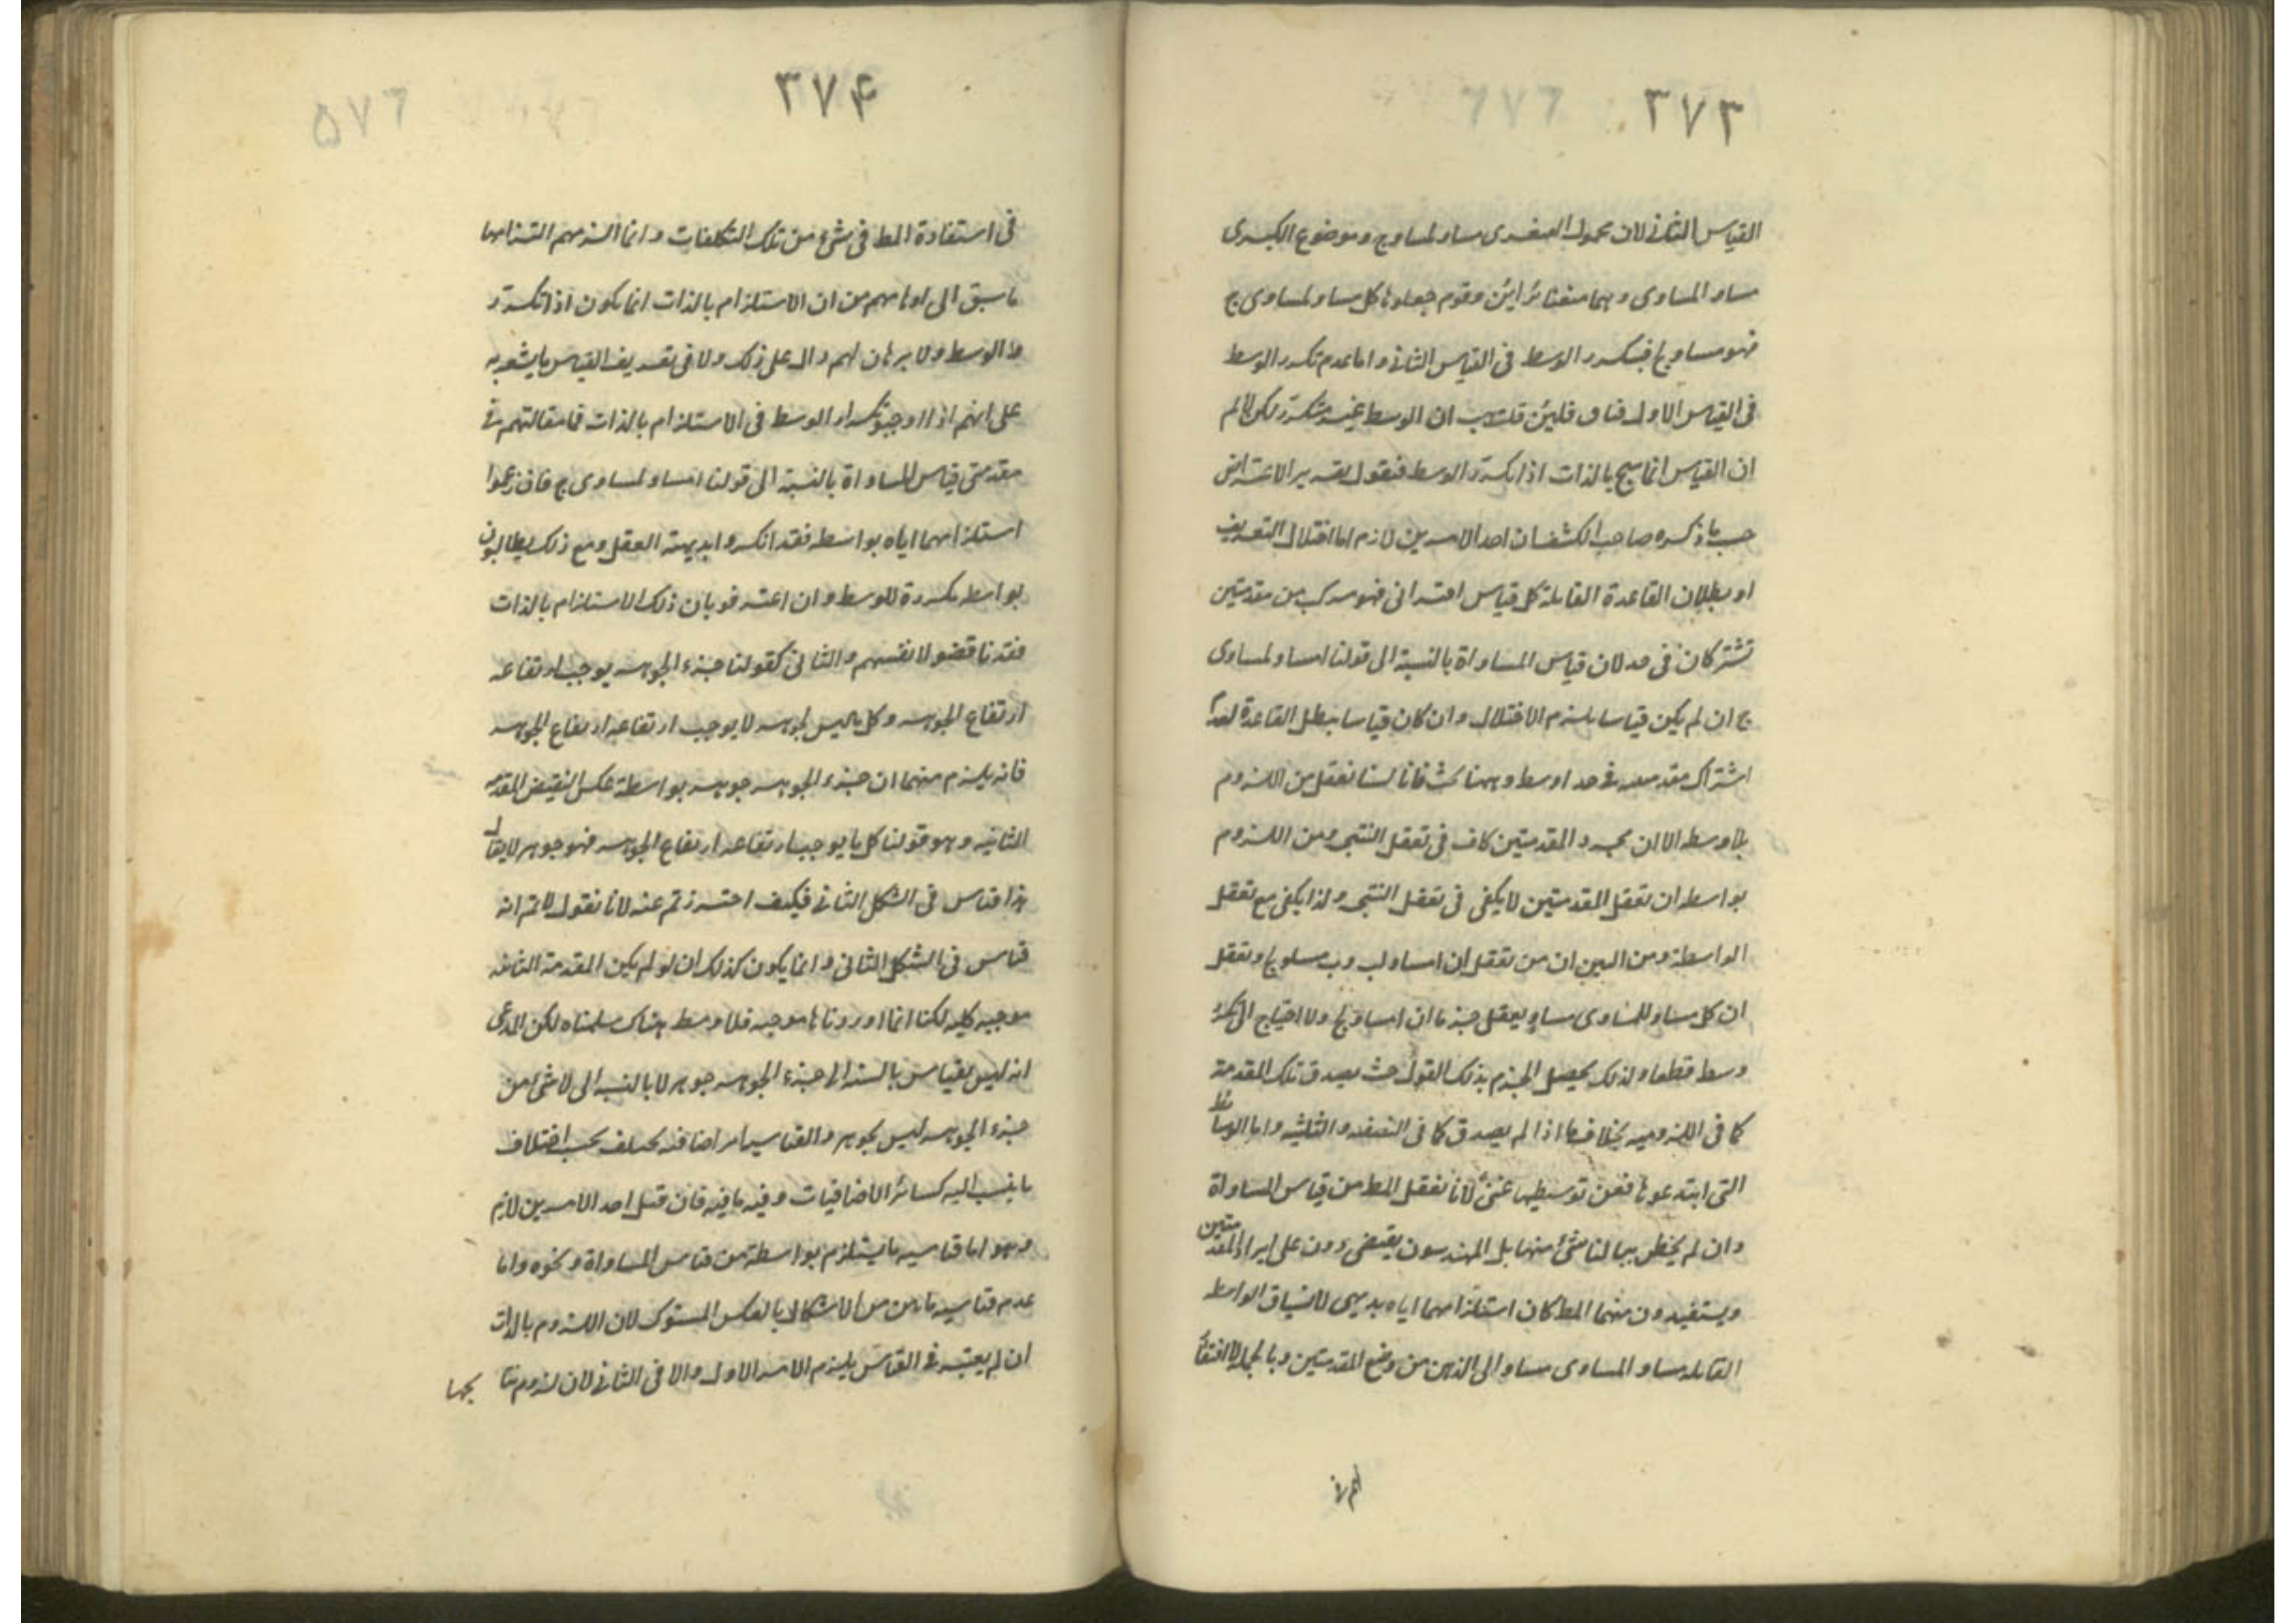 ٣٧٣
القياس الثاني لان محمول الصغرى مساو لمساوى ج وموضوع الكبرى
مساو المساوى وهما متغائرائن وقوم جعلوها كل مساو لمساوى ج
فهو مساو ج فيتكرر الوسط فى القياس الثانى واما عدم تكرر الوسط
فى القياس الاول فباق فلئن قلت هب ان الوسط غير متكرر لكن لا لم
ان القياس انما ينتج بالذات اذا تكرر الوسط فنقول تقرير الاعتراض
حسب ما ذكره صاحب الكشف ان احد الامرين لازم اما اختلال التعريف
او بطلان القاعدة القائلة كل قياس اقترانى فهو مركب من مقدمتين
تشتركان فى حد لان قياس المساواة بالنسبة الى قولنا ا مساو لمساوى
ج ان لم يكن قياسا يلزم الاختلال وان كان قياسا يبطل القاعدة لعدم
اشتراك مقدمتيه فى حد اوسط وههنا بحث فانا لسنا نعقل من اللزوم
بلا وسط الا ان مجرد المقدمتين كاف فى تعقل النتيجة ومن اللزوم
بواسطة ان تعقل المقدمتين لا يكفى فى تعقل النتيجة ولذا يكفى مع تعقل
الواسطة ومن البين ان من تعقل ان ا مساو لب وب مساو لج وتعقل
ان كل مساو للمساوى مساو يعقل جزما ان ا مساو لج ولا احتياج الى تكرر
وسط قطعا ولذلك يحصل الجزم بذلك القول حيث يصدق تلك المقدمة
كما فى اللزومية بخلاف ما اذا لم يصدق كما فى النصفية والثلثية واما الوسائط
التى ابتدعوها فعن توسيطها غنى لانا نعقل المط من قياس المساواة
وان لم يخطر ببالنا شئ منها بل المهندسون يقتضى دون على ايراد المقدمتين
ويستفيدون منهما المط كان استلزامهما اياه بديهى لانسياق الواسطة
القائلة مساو المساوى مساو الى الذهن من وضع المقدمتين وبالجملة لا افتقار
لهم فى
٣٧۴
٥٧٦
فى استفادة المط فى شئ من تلك التكلفات وانما الزمهم التزامها
ما سبق الى اوهامهم من ان الاستلزام بالذات انما يكون اذا تكرر
الوسط ولا برهان لهم دال على ذلك ولا فى تعريف القياس ما يشعر به
على انهم اذا اوجبوا تكرار الوسط فى الاستلزام بالذات فما مقالتهم فى
مقدمتى قياس المساواة بالنسبة الى قولنا ا مساو لمساوى ج فان زعموا
استلزامهما اياه بواسطة فقد انكروا بديهة العقل ومع ذلك يطالبون
بواسطة مكررة للوسط وان اعترفو بان ذلك الاستلزام بالذات
فقد ناقضو لانفسهم والثانى كقولنا جزء الجوهر يوجب ارتفاعه
ارتفاع الجوهر وكل ما ليس لجوهر لا يوجب ارتفاعه ارتفاع الجوهر
فانه يلزم منهما ان جزء الجوهر جوهر بواسطة عكس النقيض للمقدمة
الثانية وهو قولنا كل ما يوجب ارتفاعه ارتفاع الجوهر فهو جوهر لا يقال
هذا قياس فى الشكل الثانى فكيف احترزتم عنه لانا نقول لا تم انه
قياس فى الشكل الثانى وانما يكون كذلك ان لو لم يكن المقدمة الثانية
موجبة كلية لكنا انما اوردناها موجبة فلا وسط هناك سلمناه لكن المدعى
انه ليس بقياس بالنسبة الى جزء الجوهر جوهر لا بالنسبة الى لا شئ من
جزء الجوهر ليس بجوهر والقياسية امر اضافية يختلف بحسب اختلاف
ما ينسب اليه كسائر الاضافيات وفيه ما فيه فان قيل احد الامرين لازم
وهو اما قياسية ما يستلزم بواسطة من قياس المساواة ونحوه واما
عدم قياسية ما بين من الاشكال بالعكس المستوى لان اللزوم بالذات
ان لم يعتبر فى القياس يلزم الامر الاول والا فى الثانى لان لزوم نتا
يجها